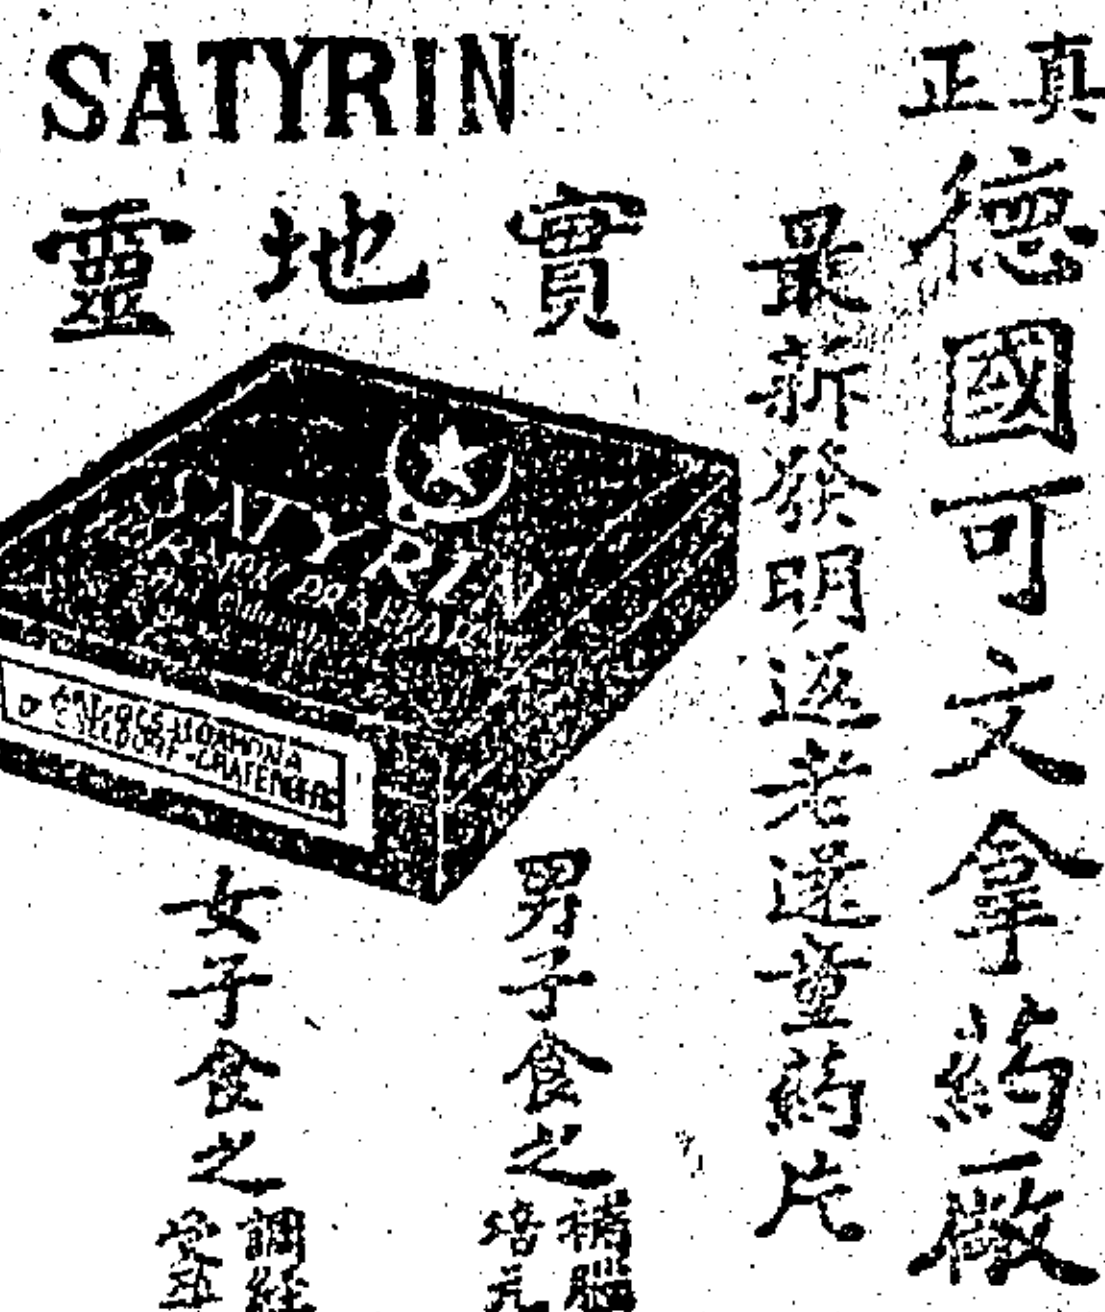 SATYRIN
真正
德國可文拿葯廠
最新發明返老還童葯片
實地靈
SATYRIN
男子食之
補腦
培元
女子食之
調經